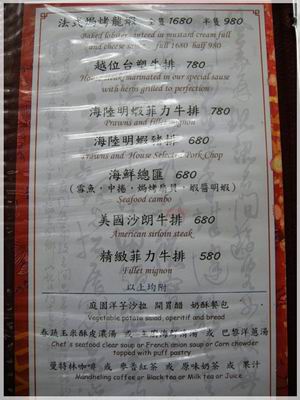 法式焗烤龍蝦 全隻1680 半隻980
Baked lobster in mustard cream full
and cheese sauce full 1680 half 980
越位台塑牛排 780
House steak marinated in our special sause
with herbs grilled to perfection
海陸明蝦菲力牛排 780
Prawns and fillet mignon
海陸明蝦豬排 680
Prawns and House Select Pork Chop
海鮮總匯 680
Seafood cambo
美國沙朗牛排 680
American sirloin steak
精緻菲力牛排 580
Fillet mignon
以上均附
庭園洋芋沙拉 開胃醋 奶酥餐包
Vegetable potato salad, aperitif and bread
或 或 巴黎洋蔥湯
Chef s seafood clear soup or French onion soup or Corn chowder
topped with puff pastry
曼特林咖啡 或 麥香紅茶 或 原味奶茶 或 果汁
Mandheling coffee or Black tea or Milk tea or Juice